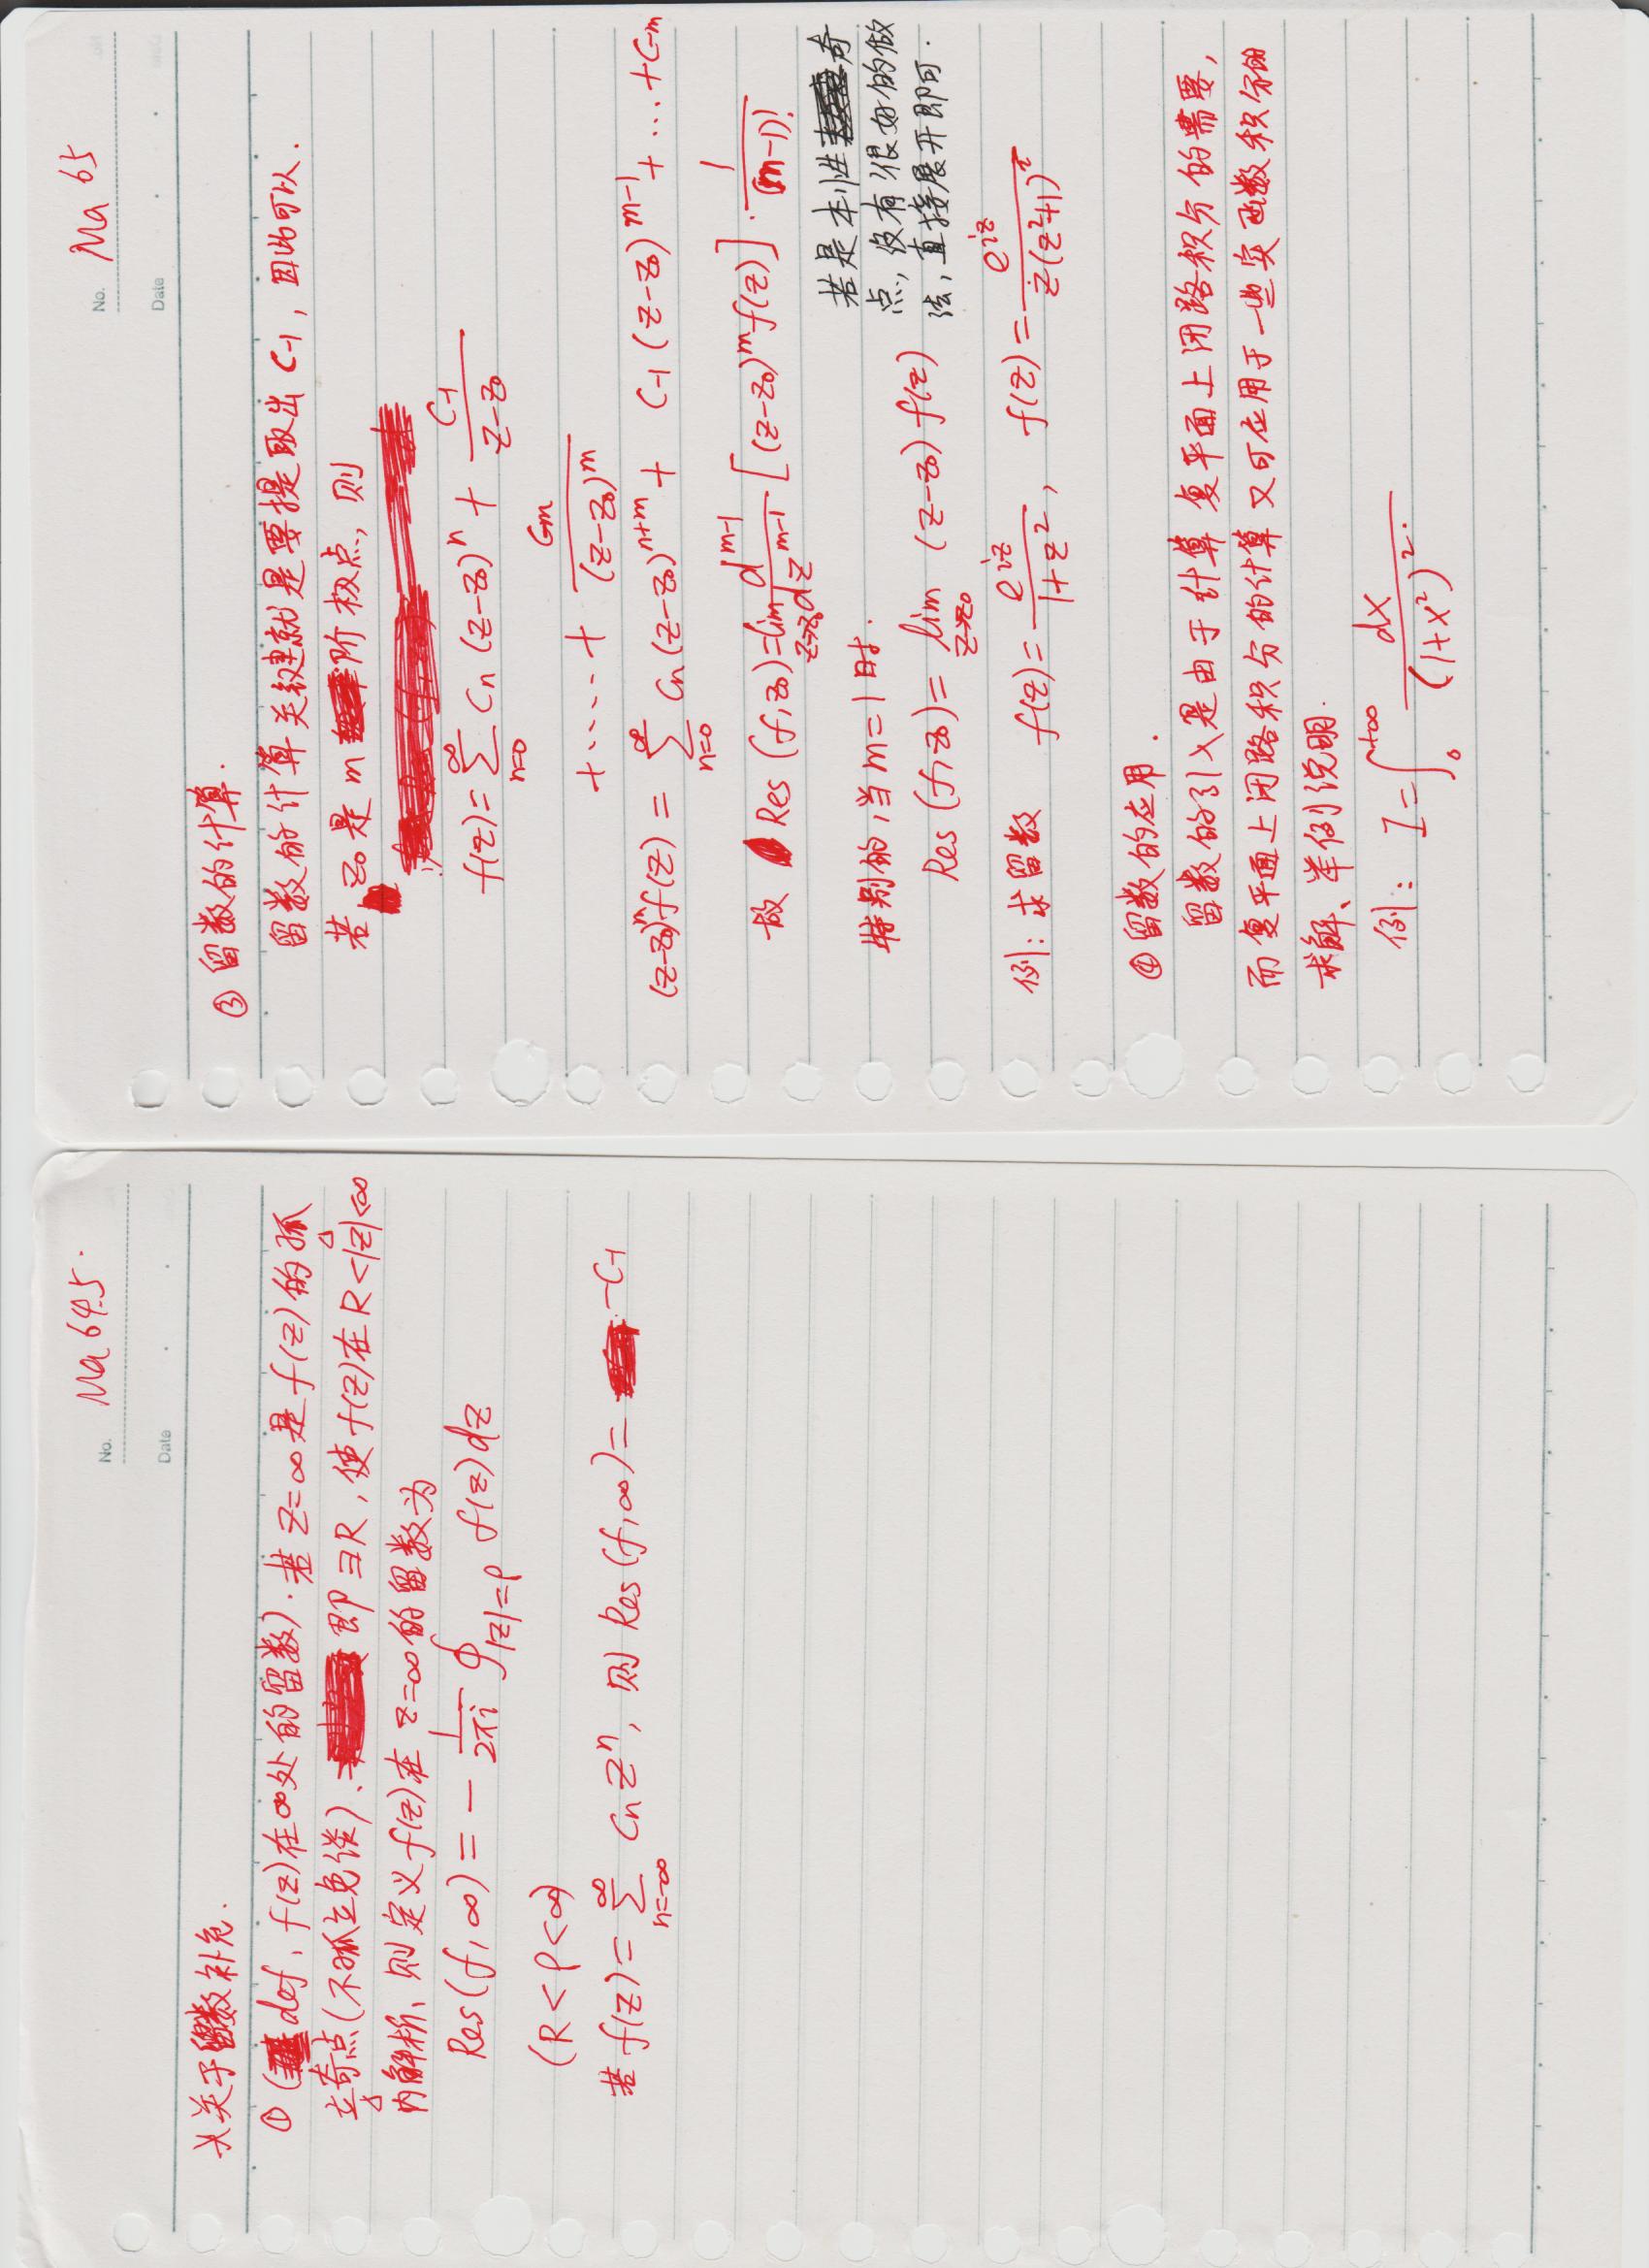 No. Ma 64.5.
Date
关于留数补充.
① (def, f(z)在∞处的留数). 若 z=∞ 是 f(z) 的孤
立奇点(不孤立免谈). 即 ∃R, 使 f(z)在 R<|z|<∞
内解析, 则定义 f(z)在 z=∞ 的留数为
Res(f,∞) = - 1/(2πi) ∮_{|z|=ρ} f(z)dz
(R<ρ<∞)
若 f(z) = ∑_{n=-∞}^{∞} Cn z^n, 则 Res(f,∞) = -C-1
No. Ma 65
Date
③ 留数的计算.
留数的计算关键就是要提取出 C-1, 因此可以.
若 z0 是 m 阶极点, 则
f(z) = ∑_{n=0}^{∞} Cn (z-z0)^n + C-1/(z-z0)
+ ····· + C-m/(z-z0)^m
(z-z0)^m f(z) = ∑_{n=0}^{∞} Cn (z-z0)^{n+m} + C-1 (z-z0)^{m-1} + ... + C-m
故 Res (f,z0) = lim_{z→z0} d^{m-1}/dz^{m-1} [(z-z0)^m f(z)] · 1/(m-1)!
若是本性奇
点, 没有很好的做
法, 直接展开即可.
特别的, 当 m=1 时.
Res (f,z0) = lim_{z→z0} (z-z0) f(z)
例: 求留数 f(z) = e^{iz}/(1+z^2), f(z) = e^{iz}/(z(z^2+1)^2)
④ 留数的应用.
留数的引入是由于计算复平面上闭路积分的需要,
而复平面上闭路积分的计算又可应用于一些实函数积分的
求解、举例说明.
例: I = ∫_0^{+∞} dx/(1+x^2)^2.